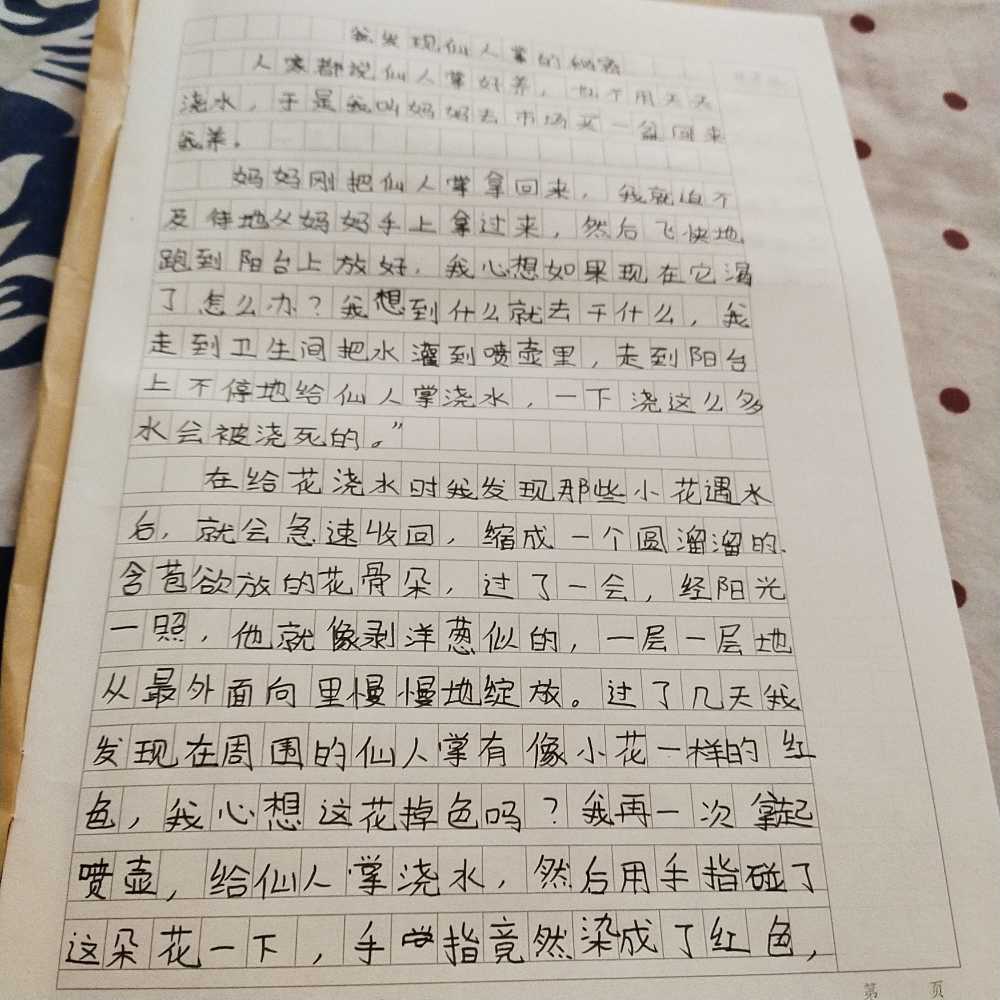 我发现仙人掌的秘密
人家都说仙人掌好养，也不用天天
浇水，于是我叫妈妈去市场买一盆回来
我养。
妈妈刚把仙人掌拿回来，我就迫不
及待地从妈妈手上拿过来，然后飞快地
跑到阳台上放好，我心想如果现在它渴
了怎么办？我想到什么就去干什么，我
走到卫生间把水灌到喷壶里，走到阳台
上不停地给仙人掌浇水，一下浇这么多
水会被浇死的。”
在给花浇水时我发现那些小花遇水
后，就会急速收回，缩成一个圆溜溜的、
含苞欲放的花骨朵，过了一会，经阳光
一照，他就像剥洋葱似的，一层一层地
从最外面向里慢慢地绽放。过了几天我
发现在周围的仙人掌有像小花一样的红
色，我心想这花掉色吗？我再一次拿起
喷壶，给仙人掌浇水，然后用手指碰了
这朵花一下，手指竟然染成了红色，
第 页